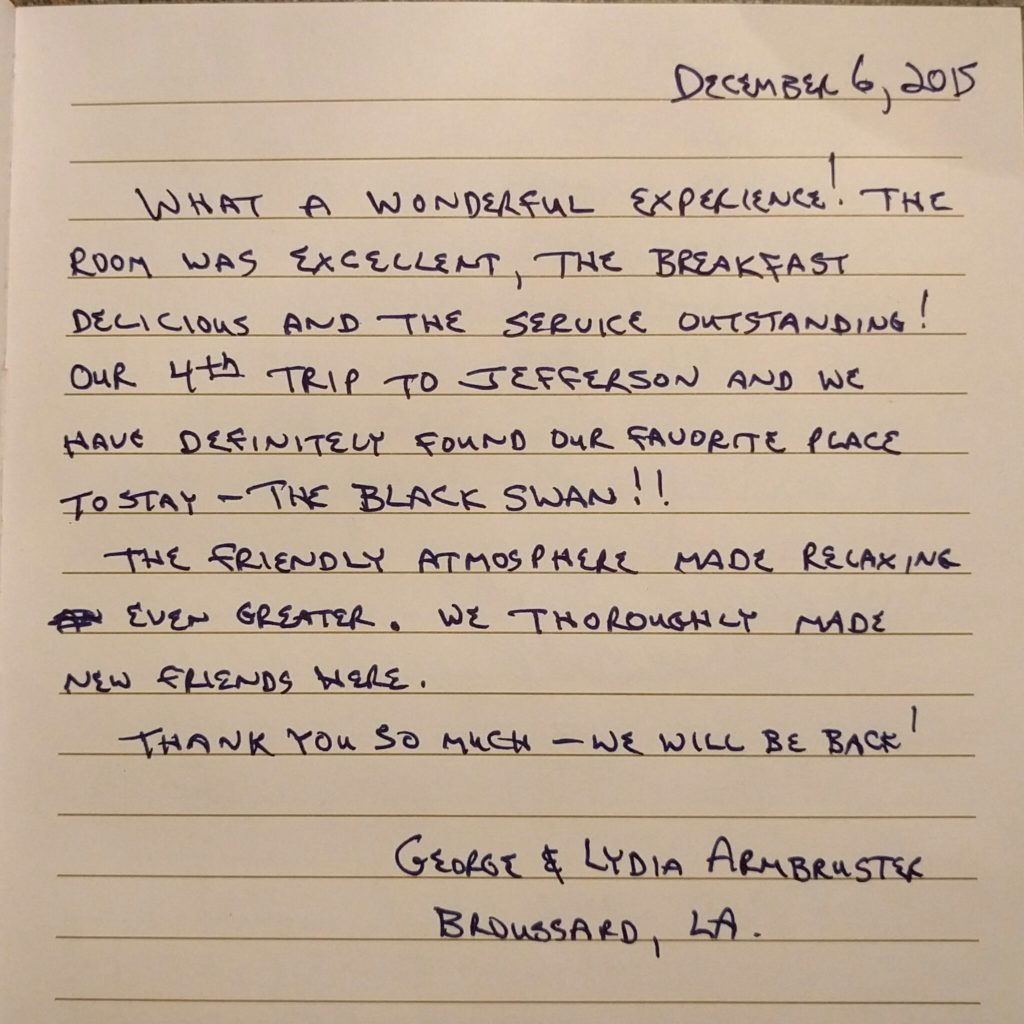 DECEMBER 6, 2015
WHAT A WONDERFUL EXPERIENCE! THE
ROOM WAS EXCELLENT, THE BREAKFAST
DELICIOUS AND THE SERVICE OUTSTANDING!
OUR 4th TRIP TO JEFFERSON AND WE
HAVE DEFINITELY FOUND OUR FAVORITE PLACE
TO STAY - THE BLACK SWAN!!
THE FRIENDLY ATMOSPHERE MADE RELAXING
EVEN GREATER. WE THOROUGHLY MADE
NEW FRIENDS HERE.
THANK YOU SO MUCH - WE WILL BE BACK!
GEORGE & LYDIA ARMBRUSTER
BROUSSARD, LA.